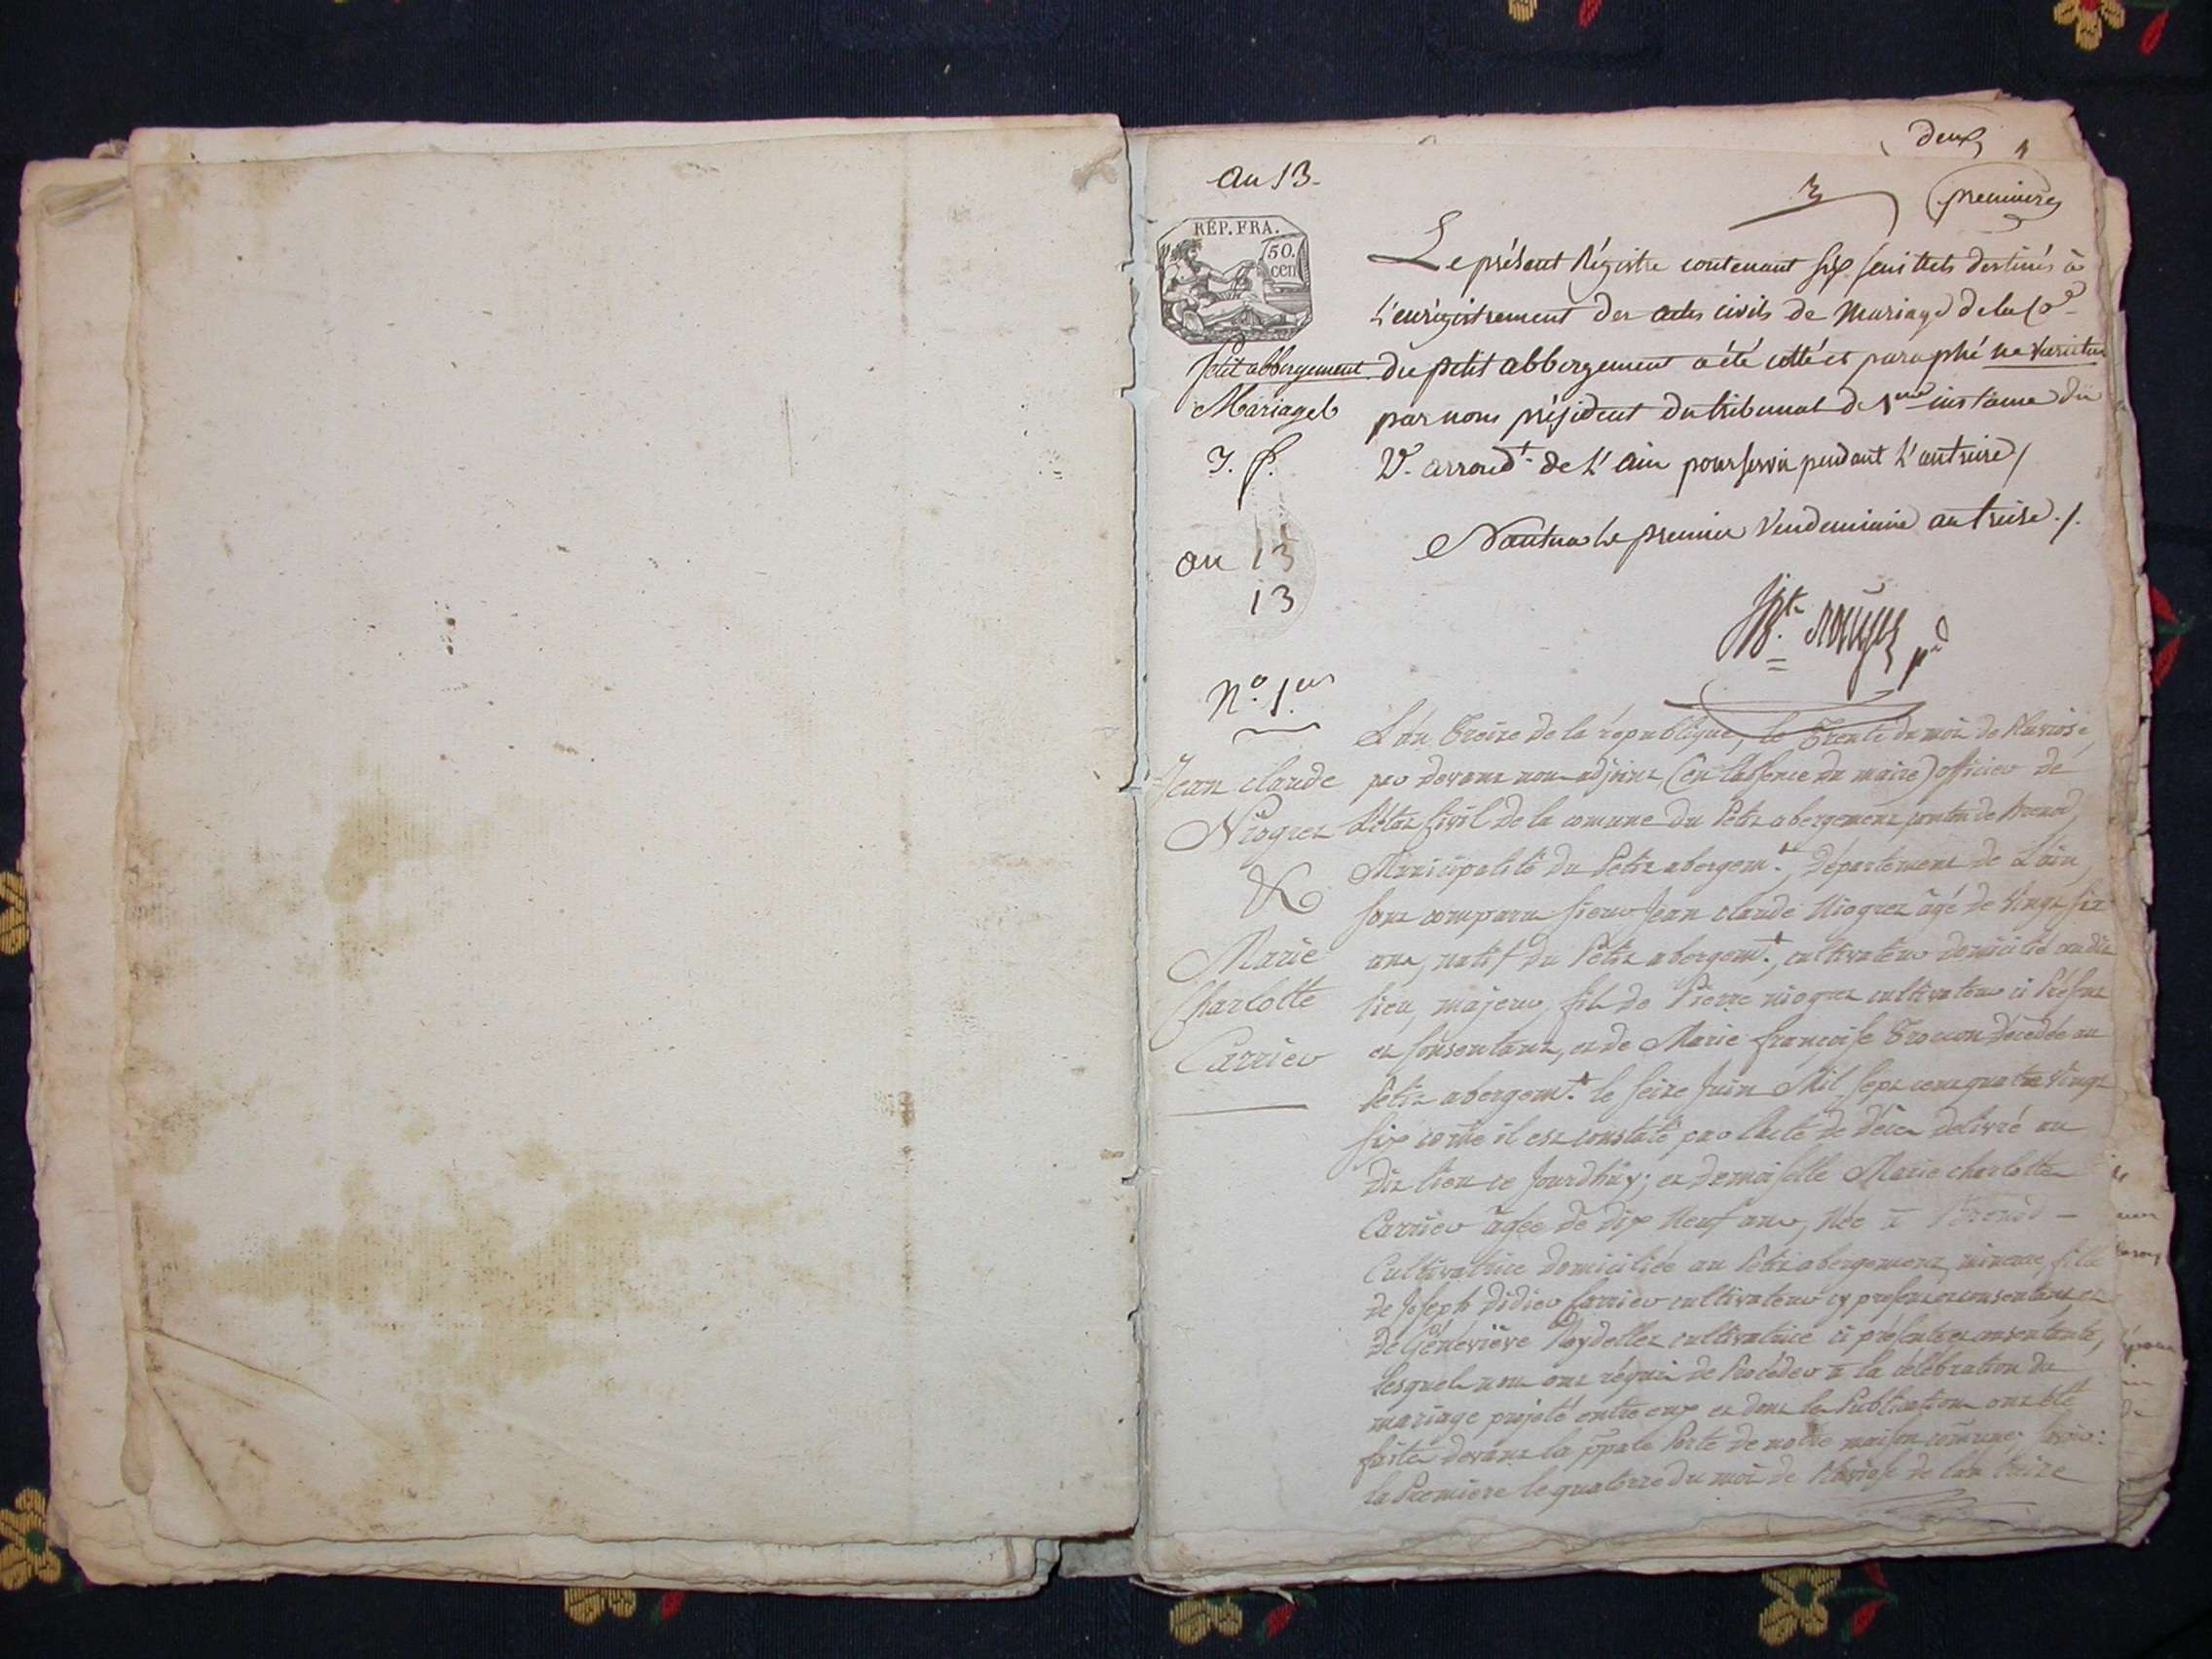 deux
premier
an 13.
RÉP. FRA.
50.
cen
Le présent Régistre contenant six feuillets destinés à
l'enrégistrement des actes civils de Mariage de la Co.e
petit abbergement
du petit abbergement a été cotté et paraphé ne varietur
Mariages
par nous président du tribunal de 1ere instance du
2e. arrond.t de l'ain pour servir pendant l'an treize /
an 13
13
Nantua le premier Vendemiaire an treize ./.
N.o 1.er
L'an Treize de la république, le Trente du mois de Pluviose,
Jean claude
par devant nous adjoint (en l'absence du maire) officier de
Niogret
l'état Civil de la comune du Petit abergement canton de Brenod,
&
Municipalité du Petit abergem.t, Département de L'ain,
sont comparu sieur Jean claude Niogret âgé de Vingt six
Marie
ans, natif du Petit abergem.t, cultivateur domicilié audit
Charlotte
lieu, majeur, fils de Pierre niogret cultivateur ci Présent
Carrier
et Consentant, et de Marie françoise Trocon décédée au
Petit abergem.t le seize Juin Mil sept cent quatre Vingt
six come il est constaté par l'acte de décès delivré au
dit lieu ce Jourdhuy; et demoiselle Marie charlotte
Carrier agée de dix Neuf ans, Née à Brenod –
Cultivatrice domiciliée au Petit abergement, mineure, fille
de Joseph Didier Carrier cultivateur cy present et consentant et
de Géneviève Reydellet cultivatrice ci présente et consentante,
lesquels nous ont réquis de Procéder à la célébration du
mariage projeté entre eux et dont les Publications ont été
faites devant la pp̃ale Porte de notre maison comune, savoir:
la Premiere le quatorze du mois de Nivose de l'an treize